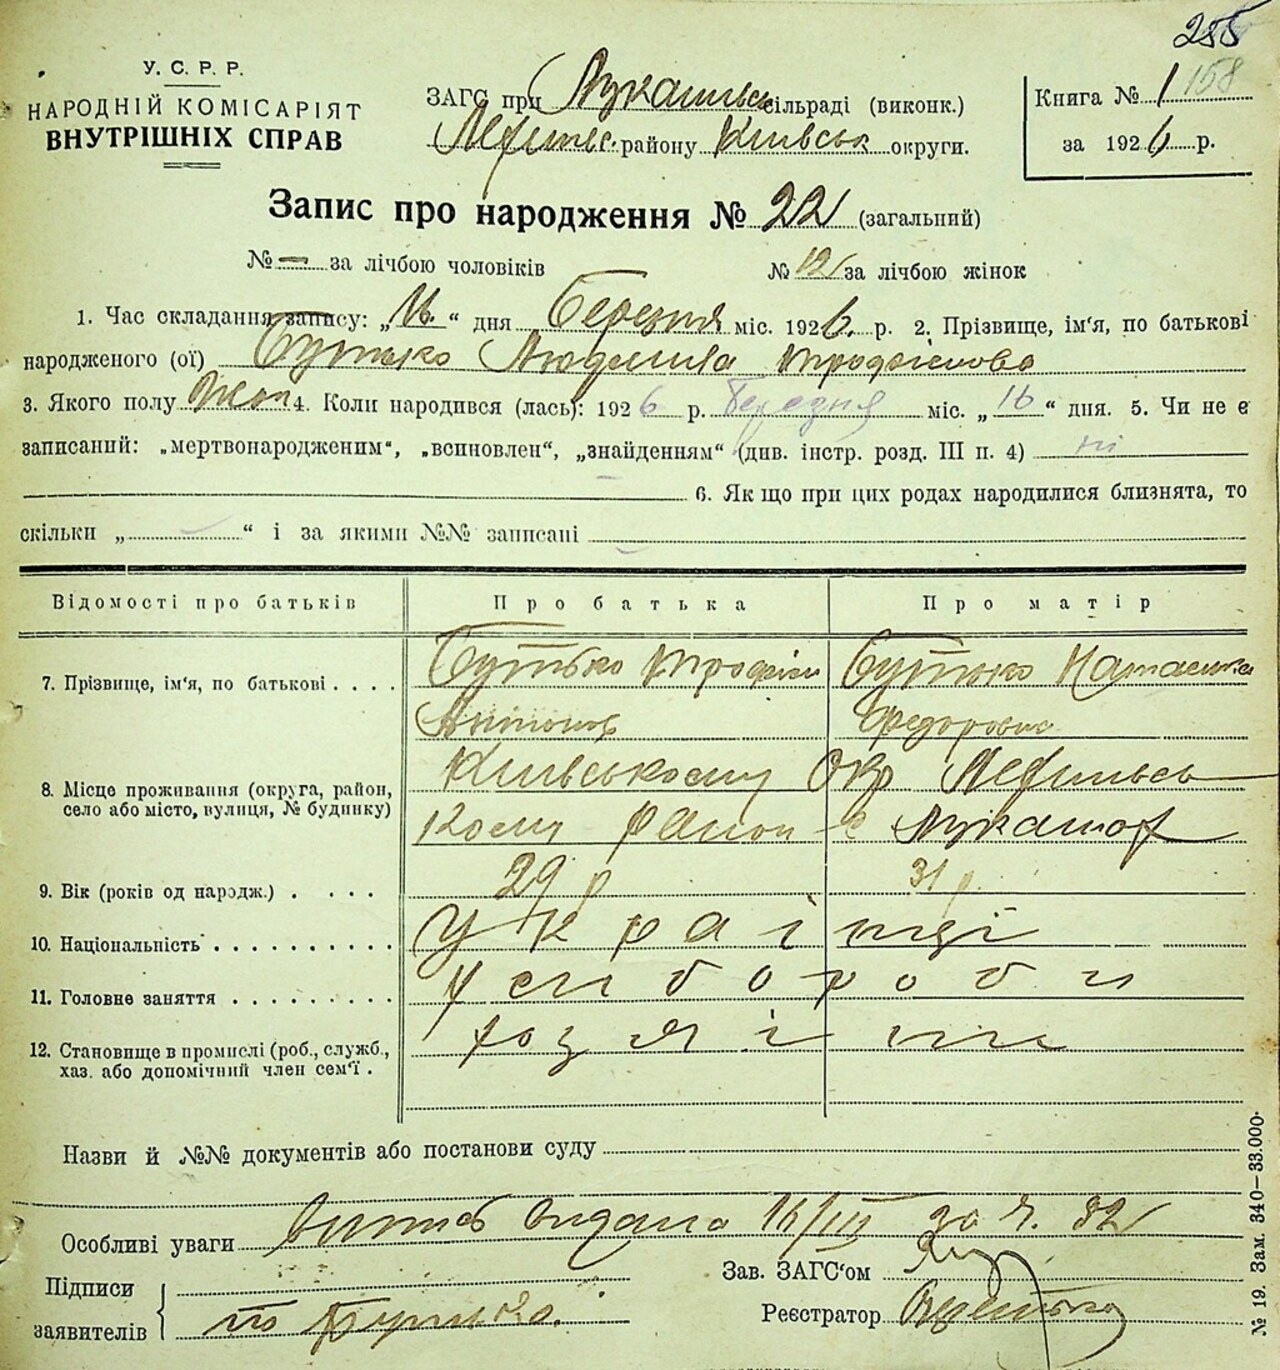 255
У. С. Р. Р.
НАРОДНІЙ КОМІСАРІЯТ
ВНУТРІШНІХ СПРАВ
ЗАГС при Лукашівськ сільраді (виконк.)
району Київськ округи.
Книга № 1 158
за 1926 р.
Запис про народження № 22 (загальний)
№ — за лічбою чоловіків
№ 12 за лічбою жінок
1. Час складання запису: „16“ дня Березня міс. 1926. р. 2. Прізвище, ім'я, по батькові
народженого (ої) Бутько Людмила Трофімова
3. Якого полу Жен 4. Коли народився (лась): 1926 р. Березня міс. „16“ дня. 5. Чи не є
записаний: „мертвонародженим“, „всиновлен“, „знайденням“ (див. інстр. розд. III п. 4) ні
6. Як що при цих родах народилися близнята, то
скільки „ “ і за якими №№ записані
Відомості про батьків Про батька Про матір
7. Прізвище, ім'я, по батькові . . . . Бутько Трофім Бутько Наталка
Антонов Федоровна
8. Місце проживання (округа, район, село або місто, вулиця, № будинку) Київському Окр
кому район с Лукашах
9. Вік (років од народж.) . . . . 29 р 31 р.
10. Національність . . . . . . . . . . Українці
11. Головне заняття . . . . . . . . . . Хлібороби
12. Становище в промислі (роб., служб., хазяіни
хаз. або допомічний член сем'ї .
Назви й №№ документів або постанови суду
Особливі уваги видана 16/III за ч. 82
Підписи
заявителів
Бутько.
Зав. ЗАГС'ом
Реєстратор
№ 19. Зам. 340—33.000.